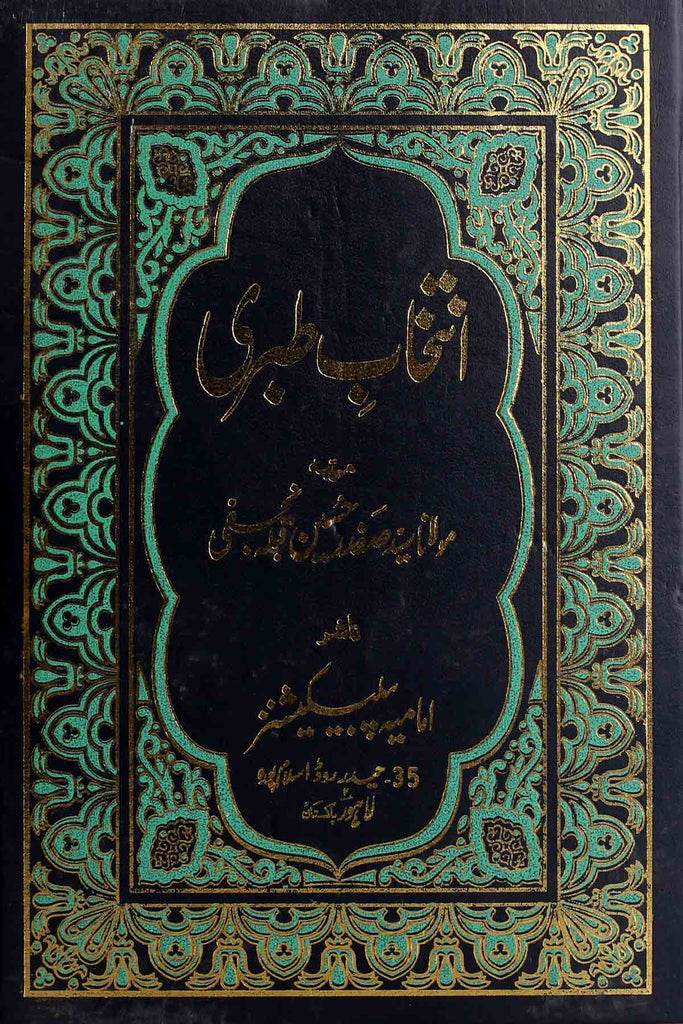 انتخابِ طبری
مرتبہ
مولانا سید صفدر حسین قبلہ نجفی
ناشر
امامیہ پبلیکیشنز
35- حیدر روڈ اسلام پورہ
لاہور پاکستان